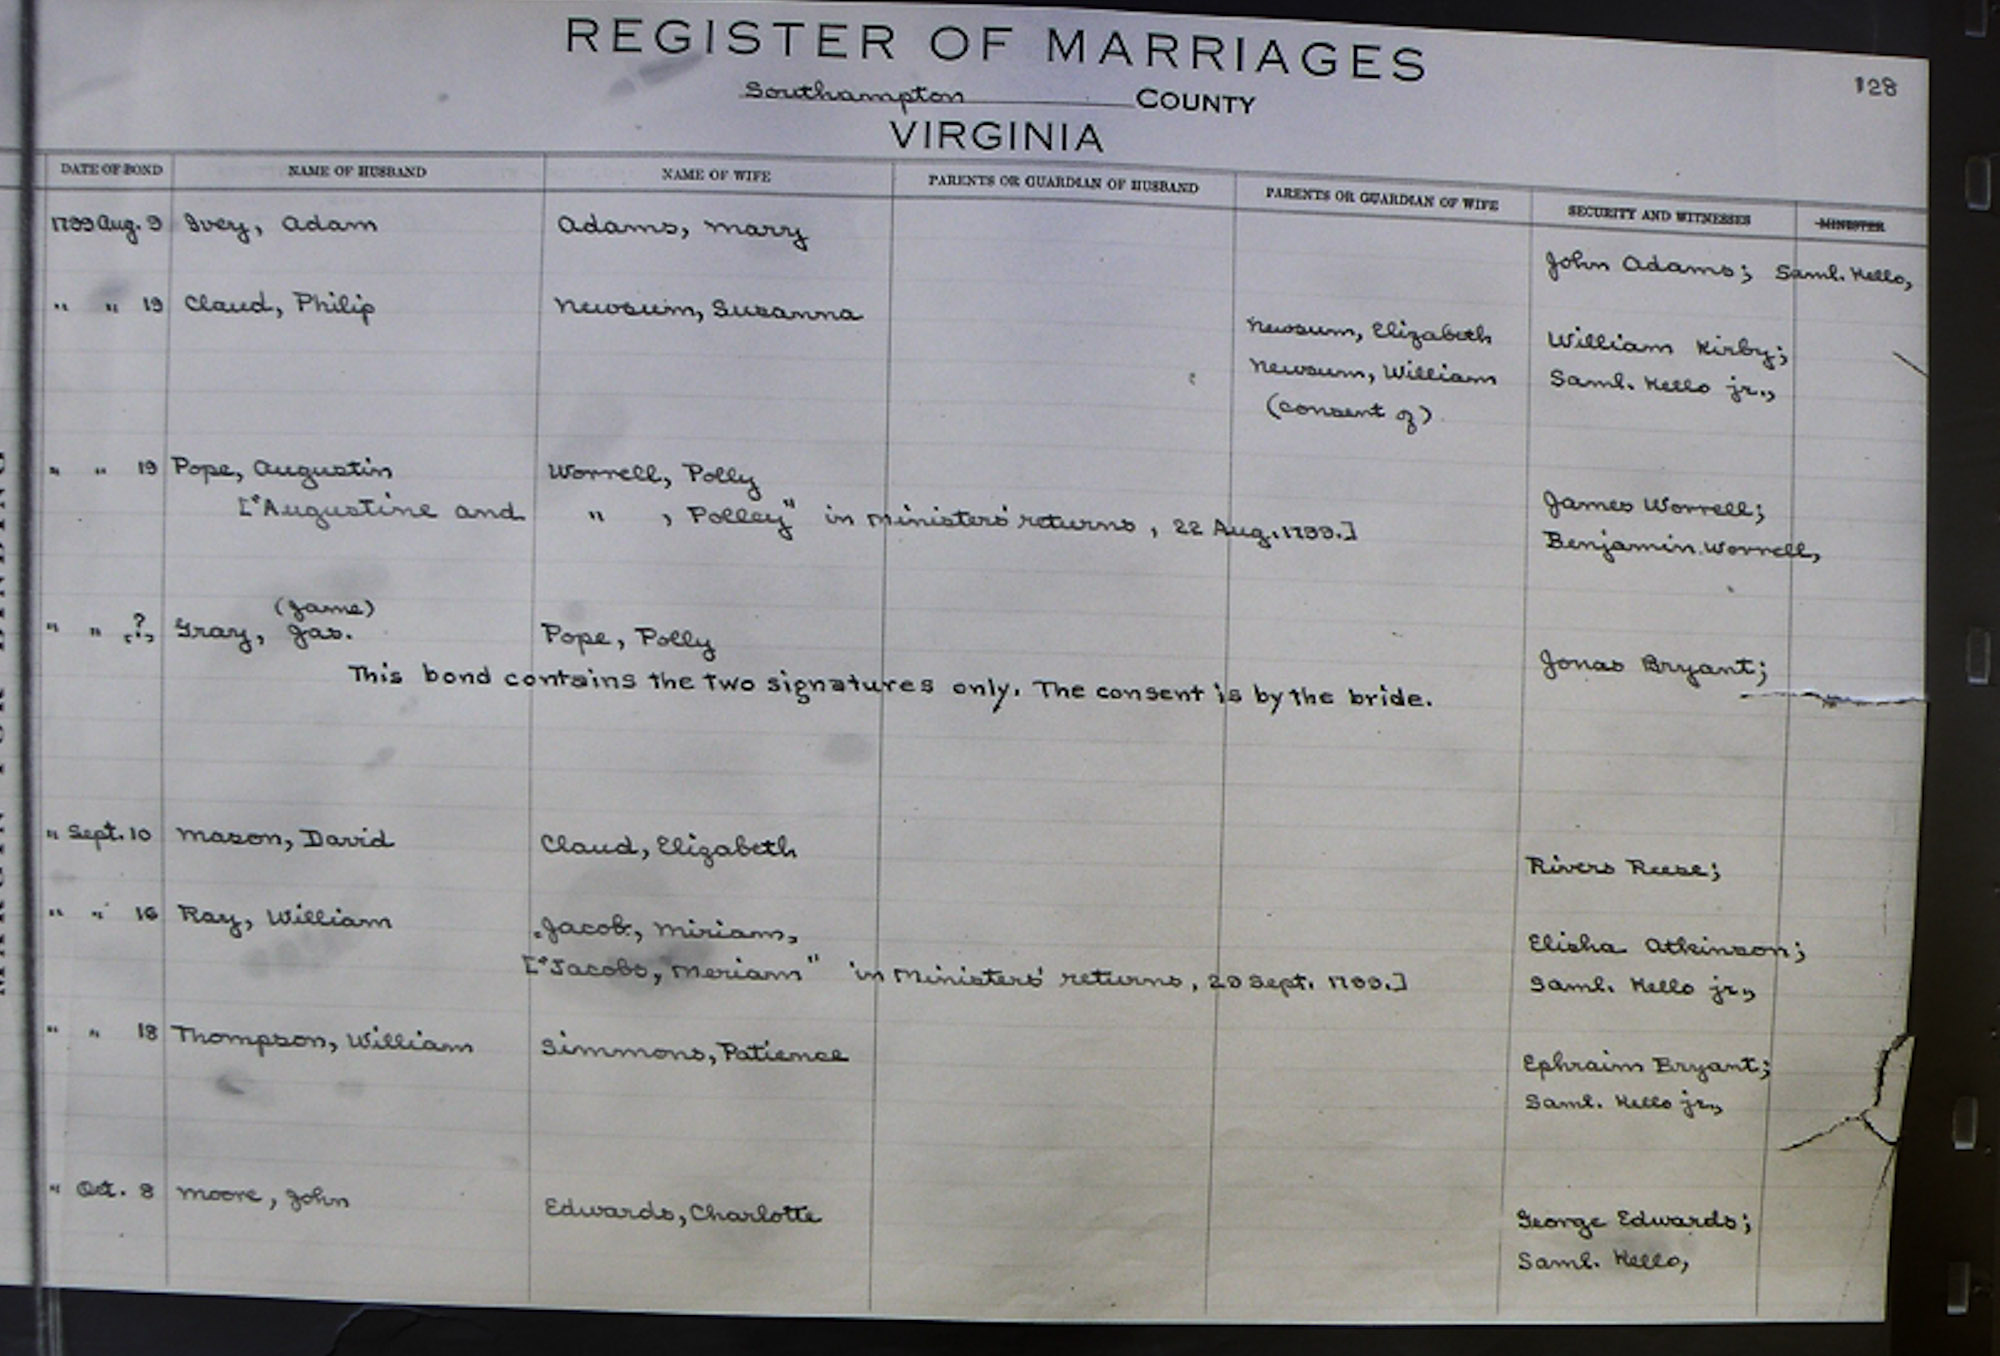 REGISTER OF MARRIAGES
128
Southampton COUNTY
VIRGINIA
DATE OF BOND NAME OF HUSBAND NAME OF WIFE PARENTS OR GUARDIAN OF HUSBAND PARENTS OR GUARDIAN OF WIFE SECURITY AND WITNESSES MINISTER
1799 Aug. 9 Ivey, Adam Adams, Mary
John Adams; Saml. Kello,
" " 19 Claud, Philip Newsum, Susanna
Newsum, Elizabeth William Kirby;
Newsum, William Saml. Kello jr.,
(consent of)
" " 19 Pope, Augustin Worrell, Polly
James Worrell;
["Augustine and " , Polley" in ministers' returns, 22 Aug. 1799.]
Benjamin Worrell,
(Jame)
" " [?] Gray, Jas. Pope, Polly
Jonas Bryant;
This bond contains the two signatures only. The consent is by the bride.
" Sept. 10 Mason, David Claud, Elizabeth
Rivers Reese;
" " 16 Ray, William Jacob, Miriam,
Elisha Atkinson;
["Jacobs, Meriam" in Ministers' returns, 29 Sept. 1799.]
Saml. Kello jr.,
" " 18 Thompson, William Simmons, Patience
Ephraim Bryant;
Saml. Kello jr.,
" Oct. 8 Moore, John Edwards, Charlotte
George Edwards;
Saml. Kello,